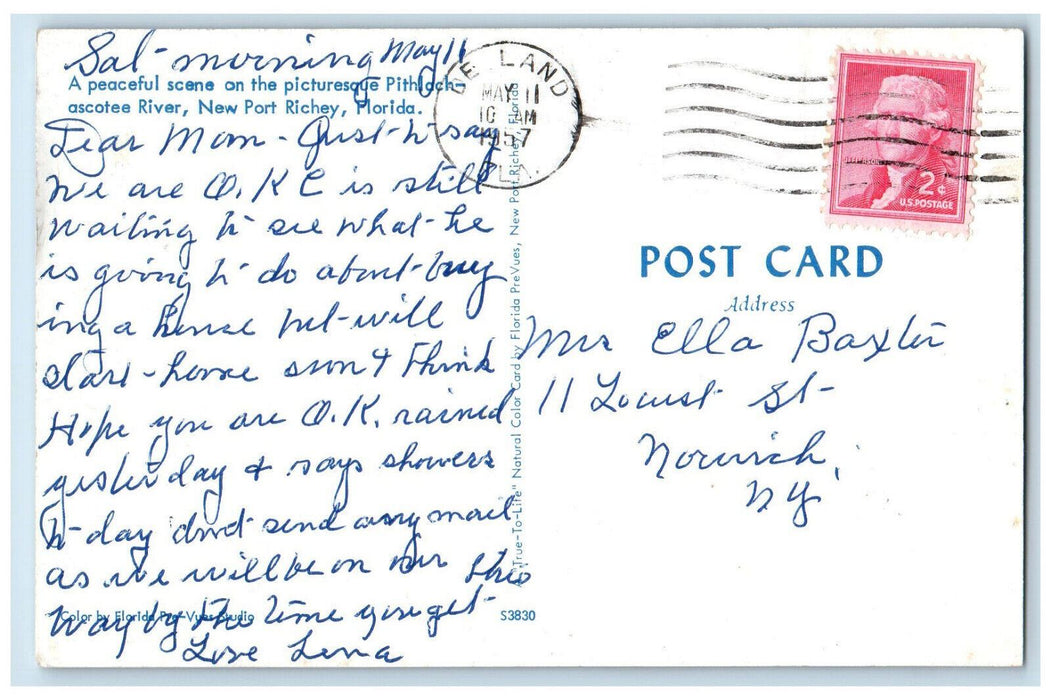 Sat- morning May 11
A peaceful scene on the picturesque Pithlach-
ascotee River, New Port Richey, Florida.
Dear Mom - Just to say
we are O.K C is still
waiting to see what he
is going to do about buy
ing a house but will
start home soon I think
Hope you are O.K. rained
yesterday & says showers
to-day dont send any mail
as we will be on our
way by the time you get this
Love Lena
Color by Florida Pre-Vues Studio
S3830
A "True-To-Life" Natural Color Card by Florida PreVues, New Port Richey, Florida
DE LAND
MAY 11
10 AM
1957
FLA.
JEFFERSON
2¢
U.S. POSTAGE
POST CARD
Address
Mrs Ella Baxter
11 Locust St-
Norwich,
N Y